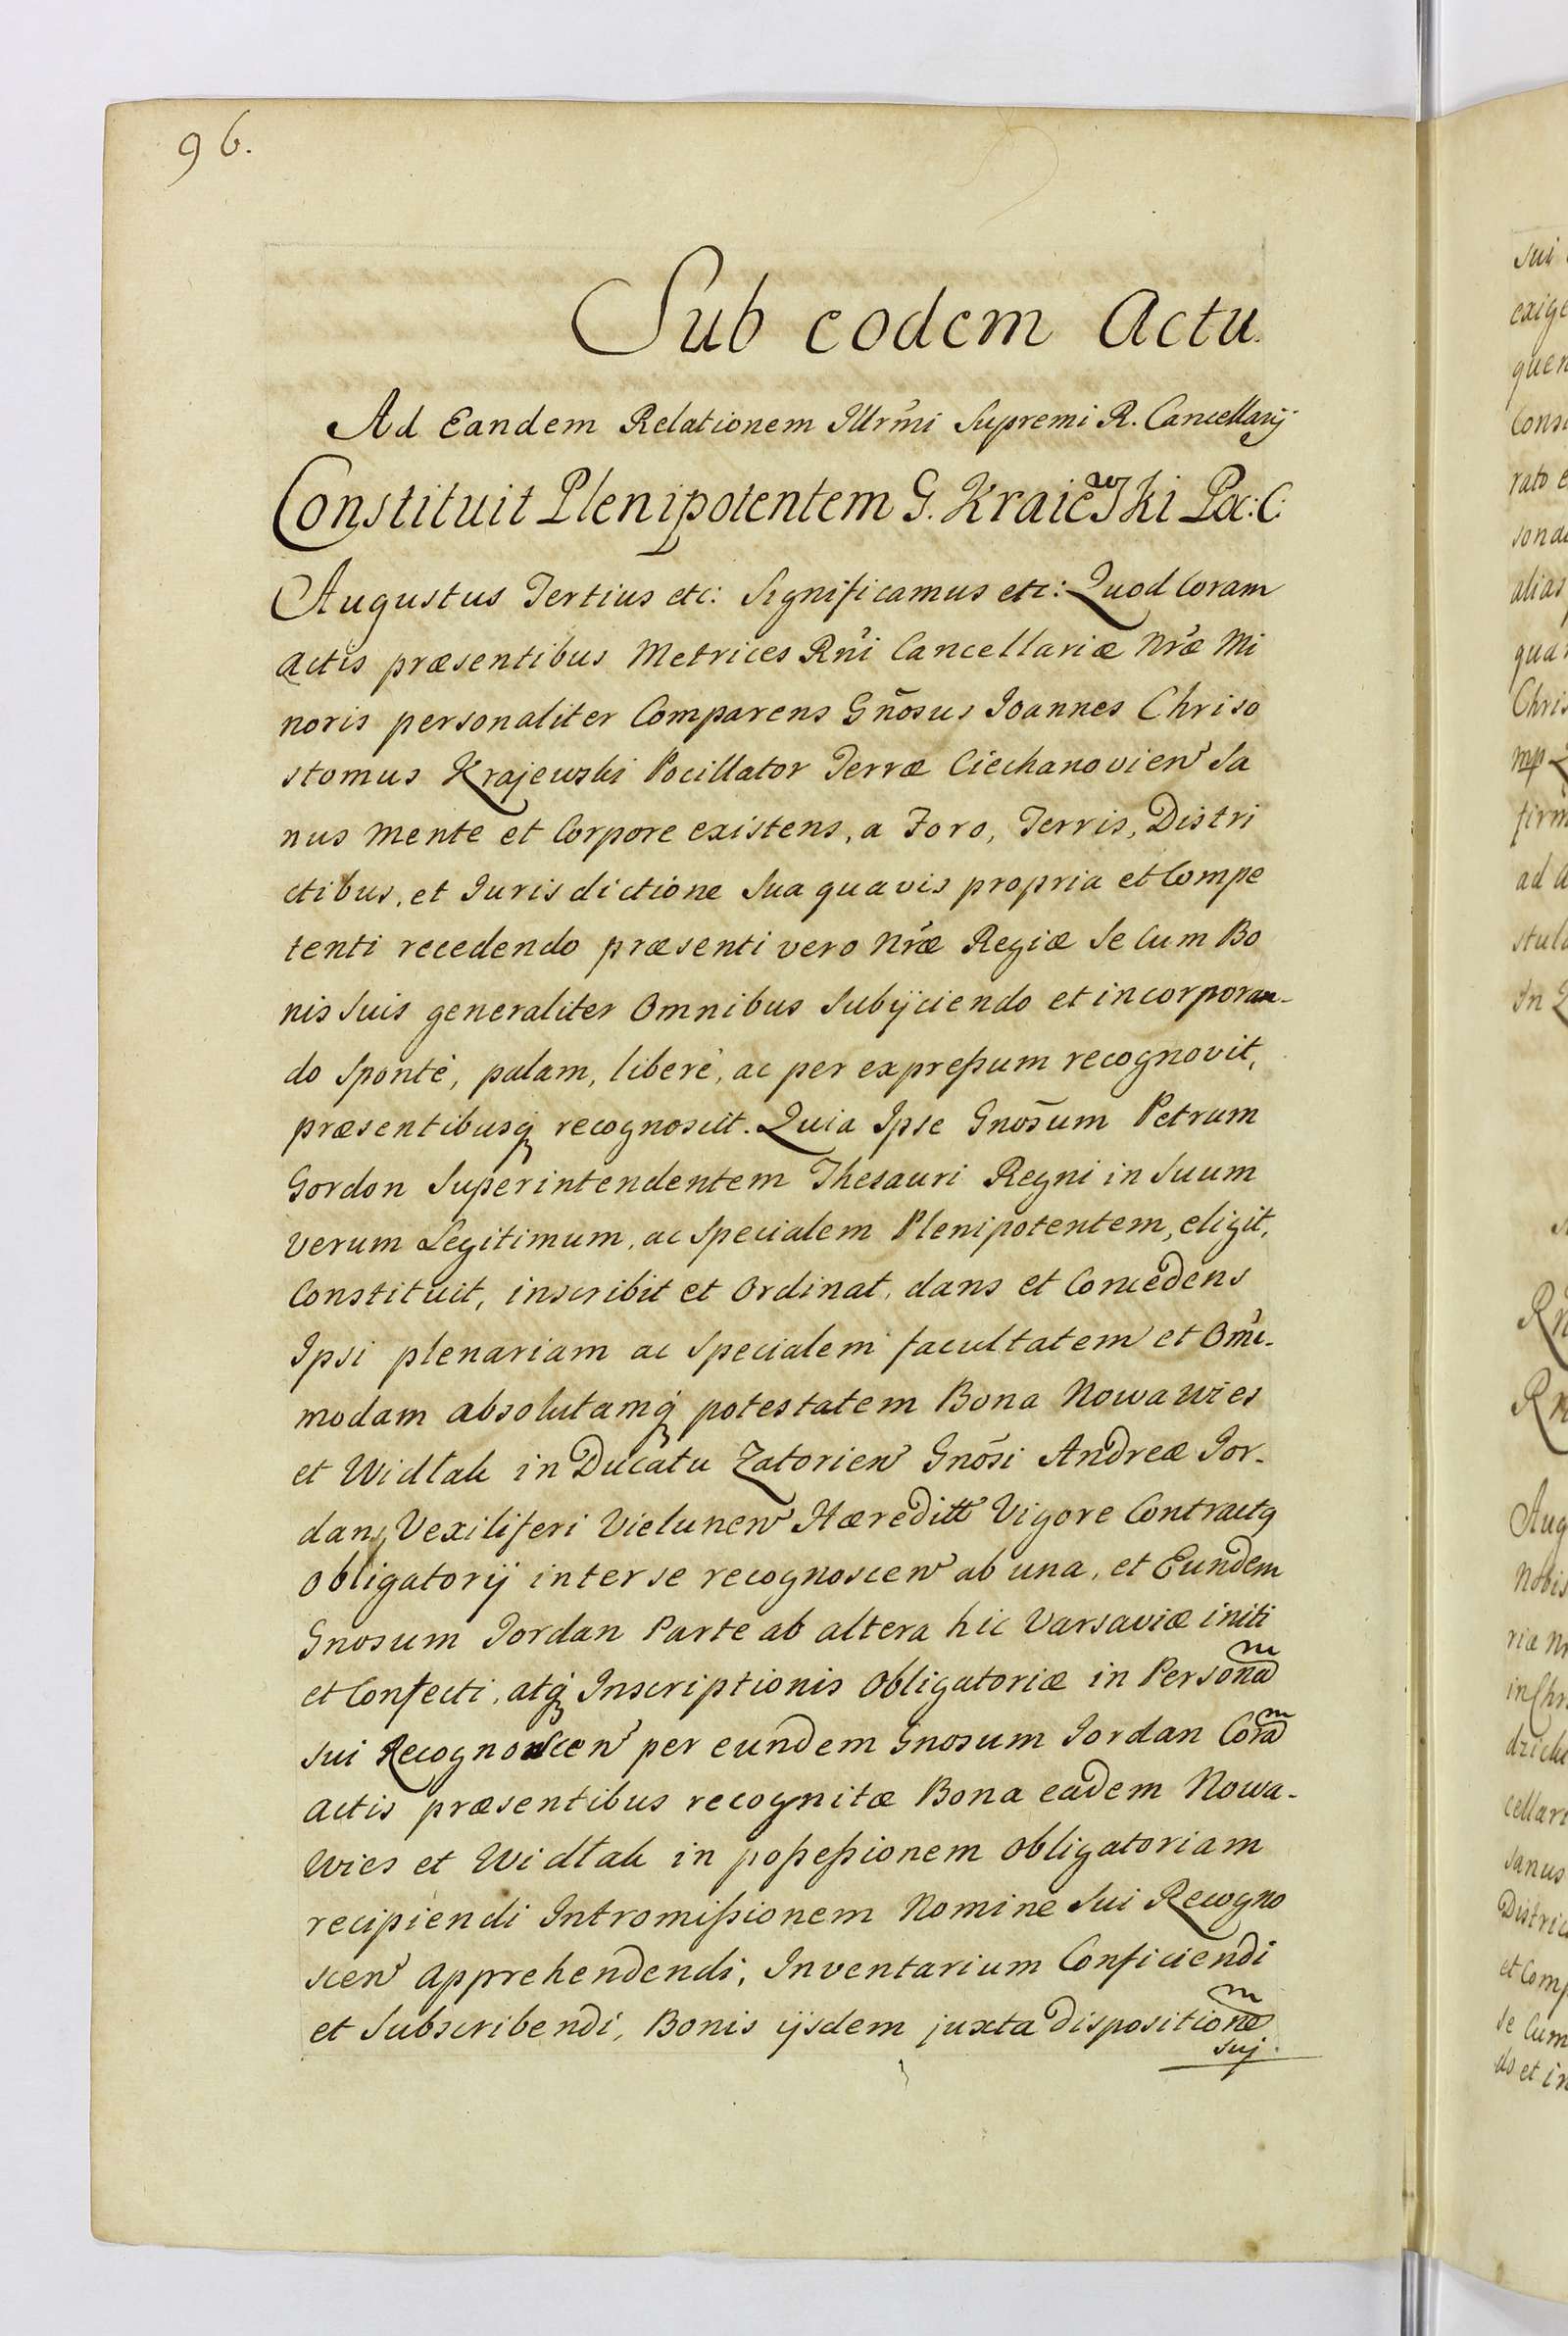 96.
Sub eodem Actu.
Ad Eandem Relationem Illrmi Supremi R. Cancellarij
Constituit Plenipotentem G. Kraiewski Poc: C:
Augustus Tertius etc: Significamus etc: Quod Coram
actis præsentibus Metrices Rni Cancellariæ Nræ Mi
noris personaliter Comparens Gnosus Ioannes Chriso
stomus Krajewski Pocillator Terræ Ciechanovien Sa
nus mente et Corpore existens, a Foro, Terris, Distri
ctibus, et Iurisdictione Sua quavis propria et Compe
tenti recedendo præsenti vero Nræ Regiæ Se Cum Bo
nis Suis generaliter Omnibus Subijciendo et incorporan-
do Sponte, palam, libere, ac per expreßum recognovit,
præsentibusq recognoscit. Quia Ipse Gnosum Petrum
Gordon Superintendentem Thesauri Regni in Suum
verum Legitimum, ac Specialem Plenipotentem, eligit,
Constituit, inscribit et Ordinat, dans et Concedens
Ipsi plenariam ac Specialem facultatem et Omi-
modam absolutamq potestatem Bona Nowa wies
et Widłak in Ducatu Zatorien Gnosi Andreæ Ior-
dan, Vexiliferi Vielunen Hæreditt Vigore Contractq
Obligatorij inter se recognoscen ab una, et Eundem
Gnosum Iordan Parte ab altera hic Varsaviæ initi
et Confecti, atq Inscriptionis Obligatoriæ in Personam
Sui Recognoscen per eundem Gnosum Iordan Coram
actis præsentibus recognitæ Bona eadem Nowa-
wies et Widłak in poßeßionem Obligatoriam
recipiendi Intromißionem Nomine Sui Recogno
scen apprehendendi, Inventarium Conficiendi
et Subscribendi, Bonis ijsdem juxta dispositionem
Suj.
sui
exige
quen
Cons
rato e
alias
Chris
mp
firm
ad a
stul
In
Aug
Nobis
cellari
Sanus
Distric
et Comp
Se Cum
do et in